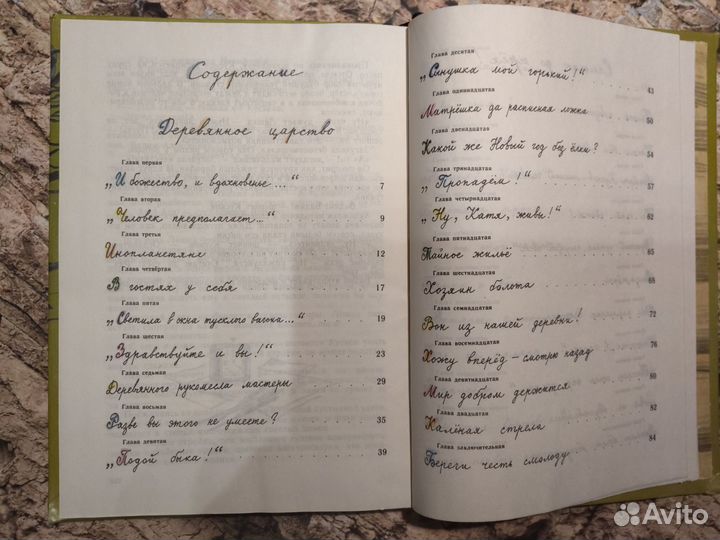 Содержание
Деревянное царство
Глава первая
„И божество, и вдохновенье..." 7
Глава вторая
„Человек предполагает..." 9
Глава третья
Инопланетяне 12
Глава четвёртая
В гостях у себя 17
Глава пятая
„Светила в окна тусклого вагона..." 19
Глава шестая
„Здравствуйте и вы!" 23
Глава седьмая
Деревянного рукомесла мастеры 29
Глава восьмая
Разве вы этого не умеете? 35
Глава девятая
„Подой быка!" 39
Глава десятая
„Синушка мой горький!" 43
Глава одиннадцатая
Матрёшка да расписная ложка 50
Глава двенадцатая
Какой же Новый год без ёлки? 54
Глава тринадцатая
„Пропадём!" 57
Глава четырнадцатая
„Ну, Катя, живы!" 62
Глава пятнадцатая
Тайное жильё 65
Глава шестнадцатая
Хозяин болота 68
Глава семнадцатая
Вон из нашей деревни! 72
Глава восемнадцатая
Хожу вперёд — смотрю назад 76
Глава девятнадцатая
Мир добром держится 80
Глава двадцатая
Калёная стрела 82
Глава заключительная
Береги честь смолоду 84
Avito